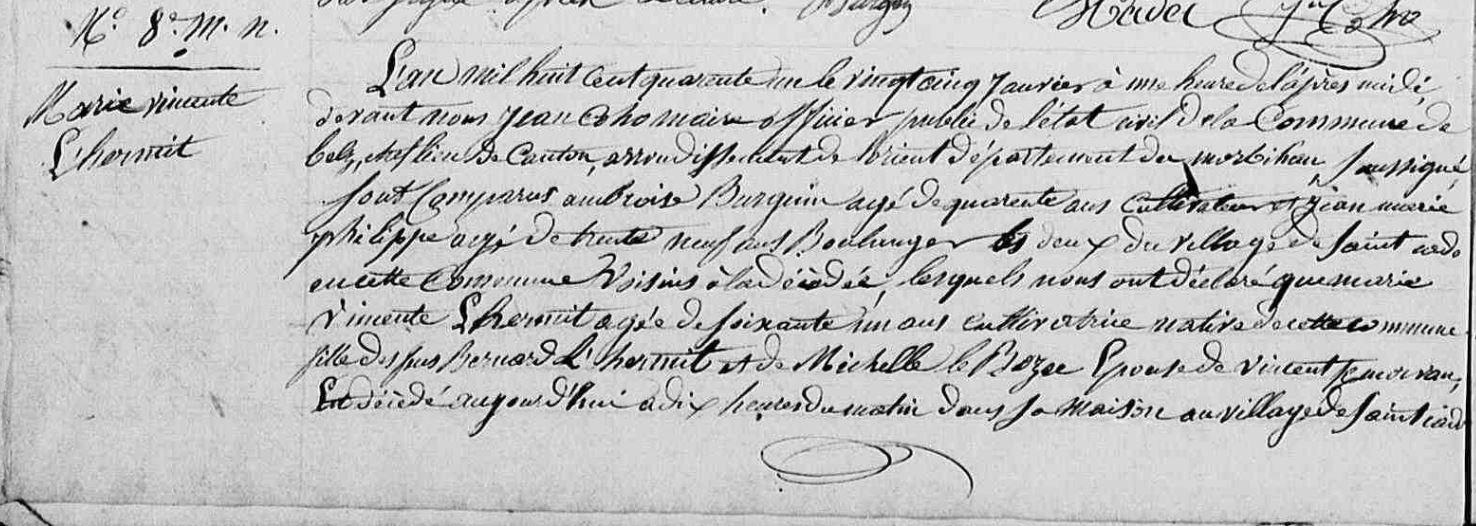 après lecture.
N.° 8.e M. n.
Marie vincente
L'hermit
L'an mil huit cent quarente un le vingt cinq Janvier à une heure de l'après midi,
devant nous jean Coho maire officier public de l'état civil de la Commune de
belz, chef lieu de Canton, arrondissement de Lorient département du morbihan, Soussigné,
Sont Comparus ambroise Burguin agé de quarente ans Cultivateur et jean marie
philippe agé de trente neuf ans Boulanger les deux du village de Saint cado
en cette Commune Voisins à la décédée, lesquels nous ont déclaré que marie
Vincente Lhermit agée de Soixante un ans cultivatrice native de cette commune
fille des feus Bernard L'hermit et de Michelle le Bozec Epouse de vincent
Est décédé aujourd'hui a dix heures du matin dans Sa Maison au village de Saint cado